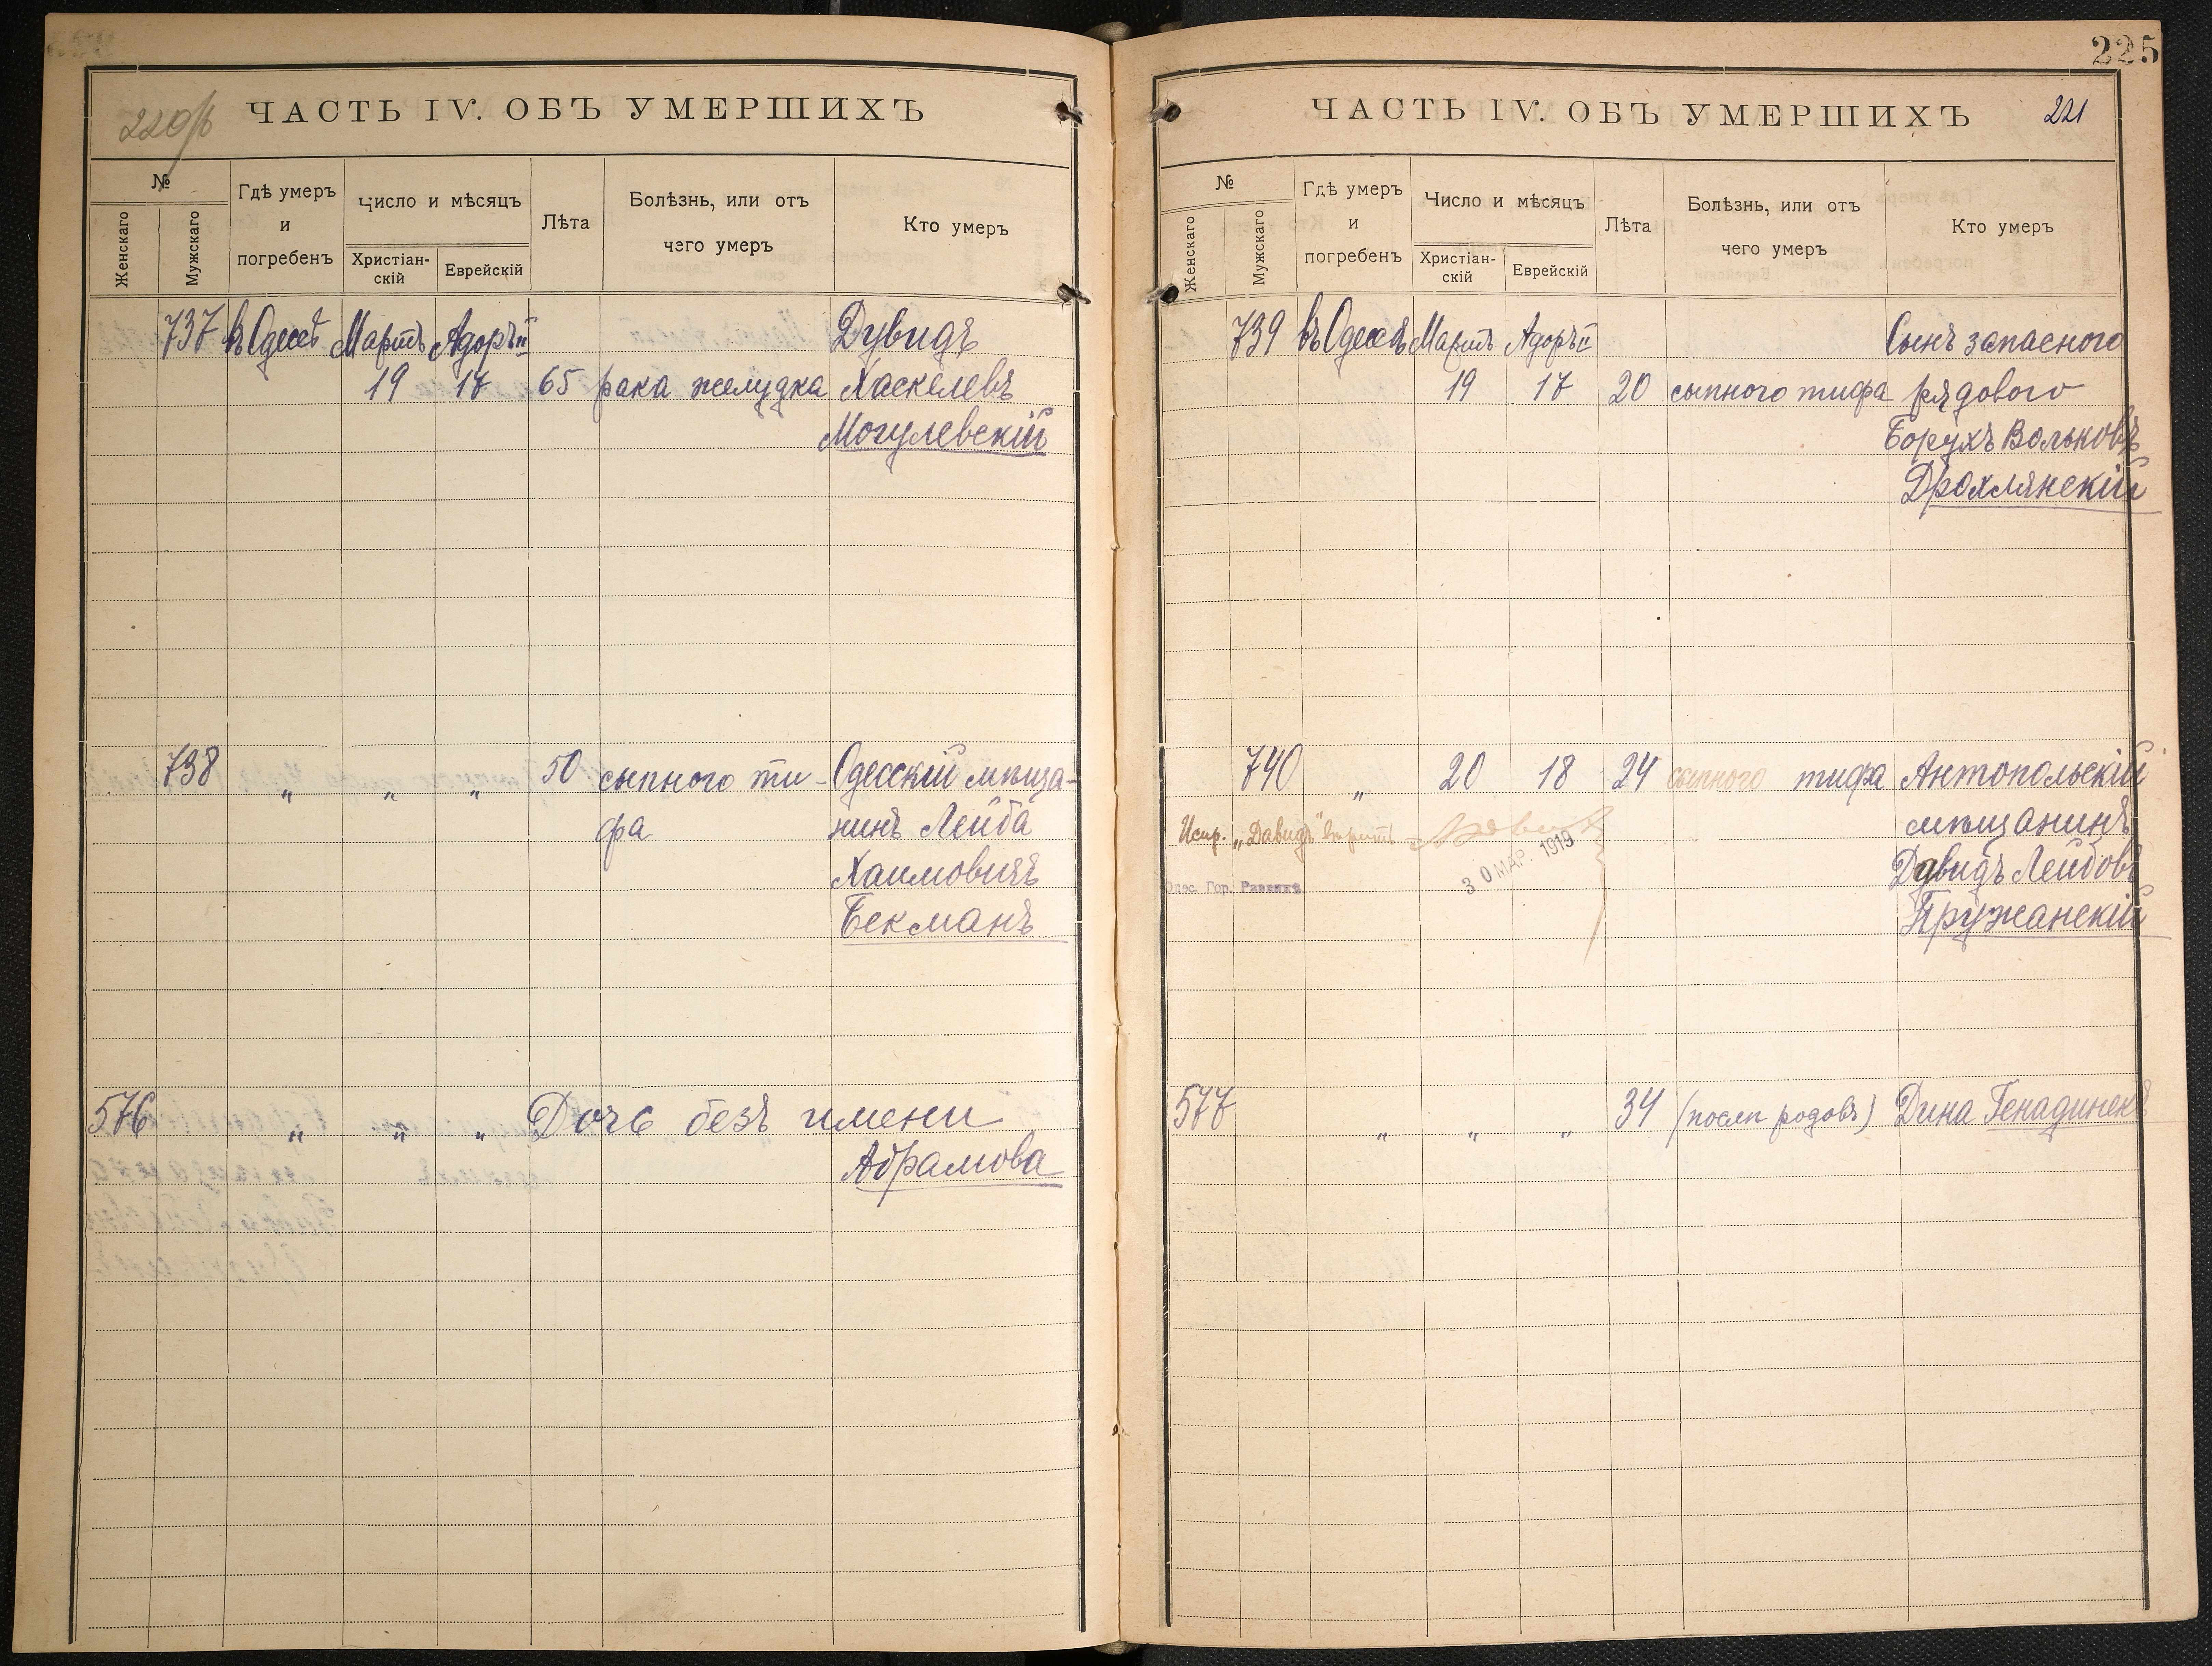 220/б
ЧАСТЬ IV. ОБЪ УМЕРШИХЪ
№
Женскаго
Мужскаго
Гдѣ умеръ
и
погребенъ
Число и мѣсяцъ
Христіан-
скій
Еврейскій
Лѣта
Болѣзнь, или отъ
чего умеръ
Кто умеръ
737 въ Одессѣ Мартъ Адоръ II Дувидъ
19 17 65 рака желудка Хаскелевъ
Могулевскій
738 " " " 50 сыпного ти- Одесскій мѣща-
фа нинъ Лейба
Хаимовичъ
Бекманъ
576 " " " Дочь безъ имени
Абрамова
225
ЧАСТЬ IV. ОБЪ УМЕРШИХЪ 221
№
Женскаго
Мужскаго
Гдѣ умеръ
и
погребенъ
Число и мѣсяцъ
Христіан-
скій
Еврейскій
Лѣта
Болѣзнь, или отъ
чего умеръ
Кто умеръ
739 въ Одессѣ Мартъ Адоръ II Сынъ запасного
19 17 20 сыпного тифа рядового
Борухъ Вольковъ
Дрохлянскій
740 " 20 18 24 сыпного тифа Антопольскій
Испр. „Давидъ" вѣрить мѣщанинъ
30 МАР. 1919
Одес. Гор. Раввинъ Дувидъ Лейбовъ
Пружанскій
577 " " " 34 (послѣ родовъ) Дина Генадинекъ